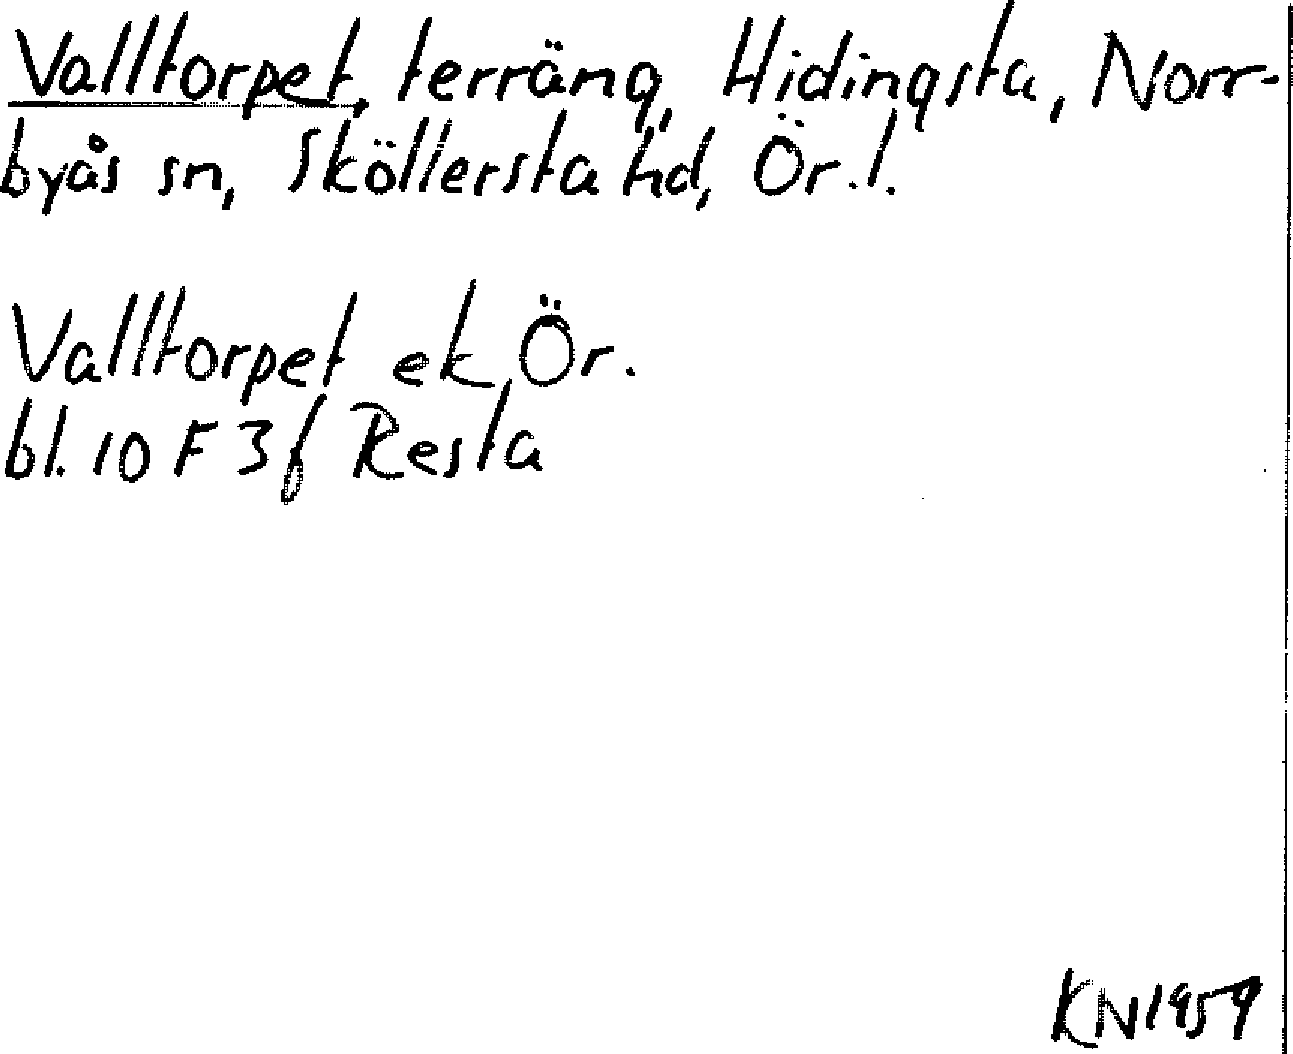 Valltorpet, terräng, Hidingsta, Norr-
byås sn, Sköllersta hd, Ör. l.
Valltorpet ek Ör.
bl. 10 F 3f Resta
KN 1959